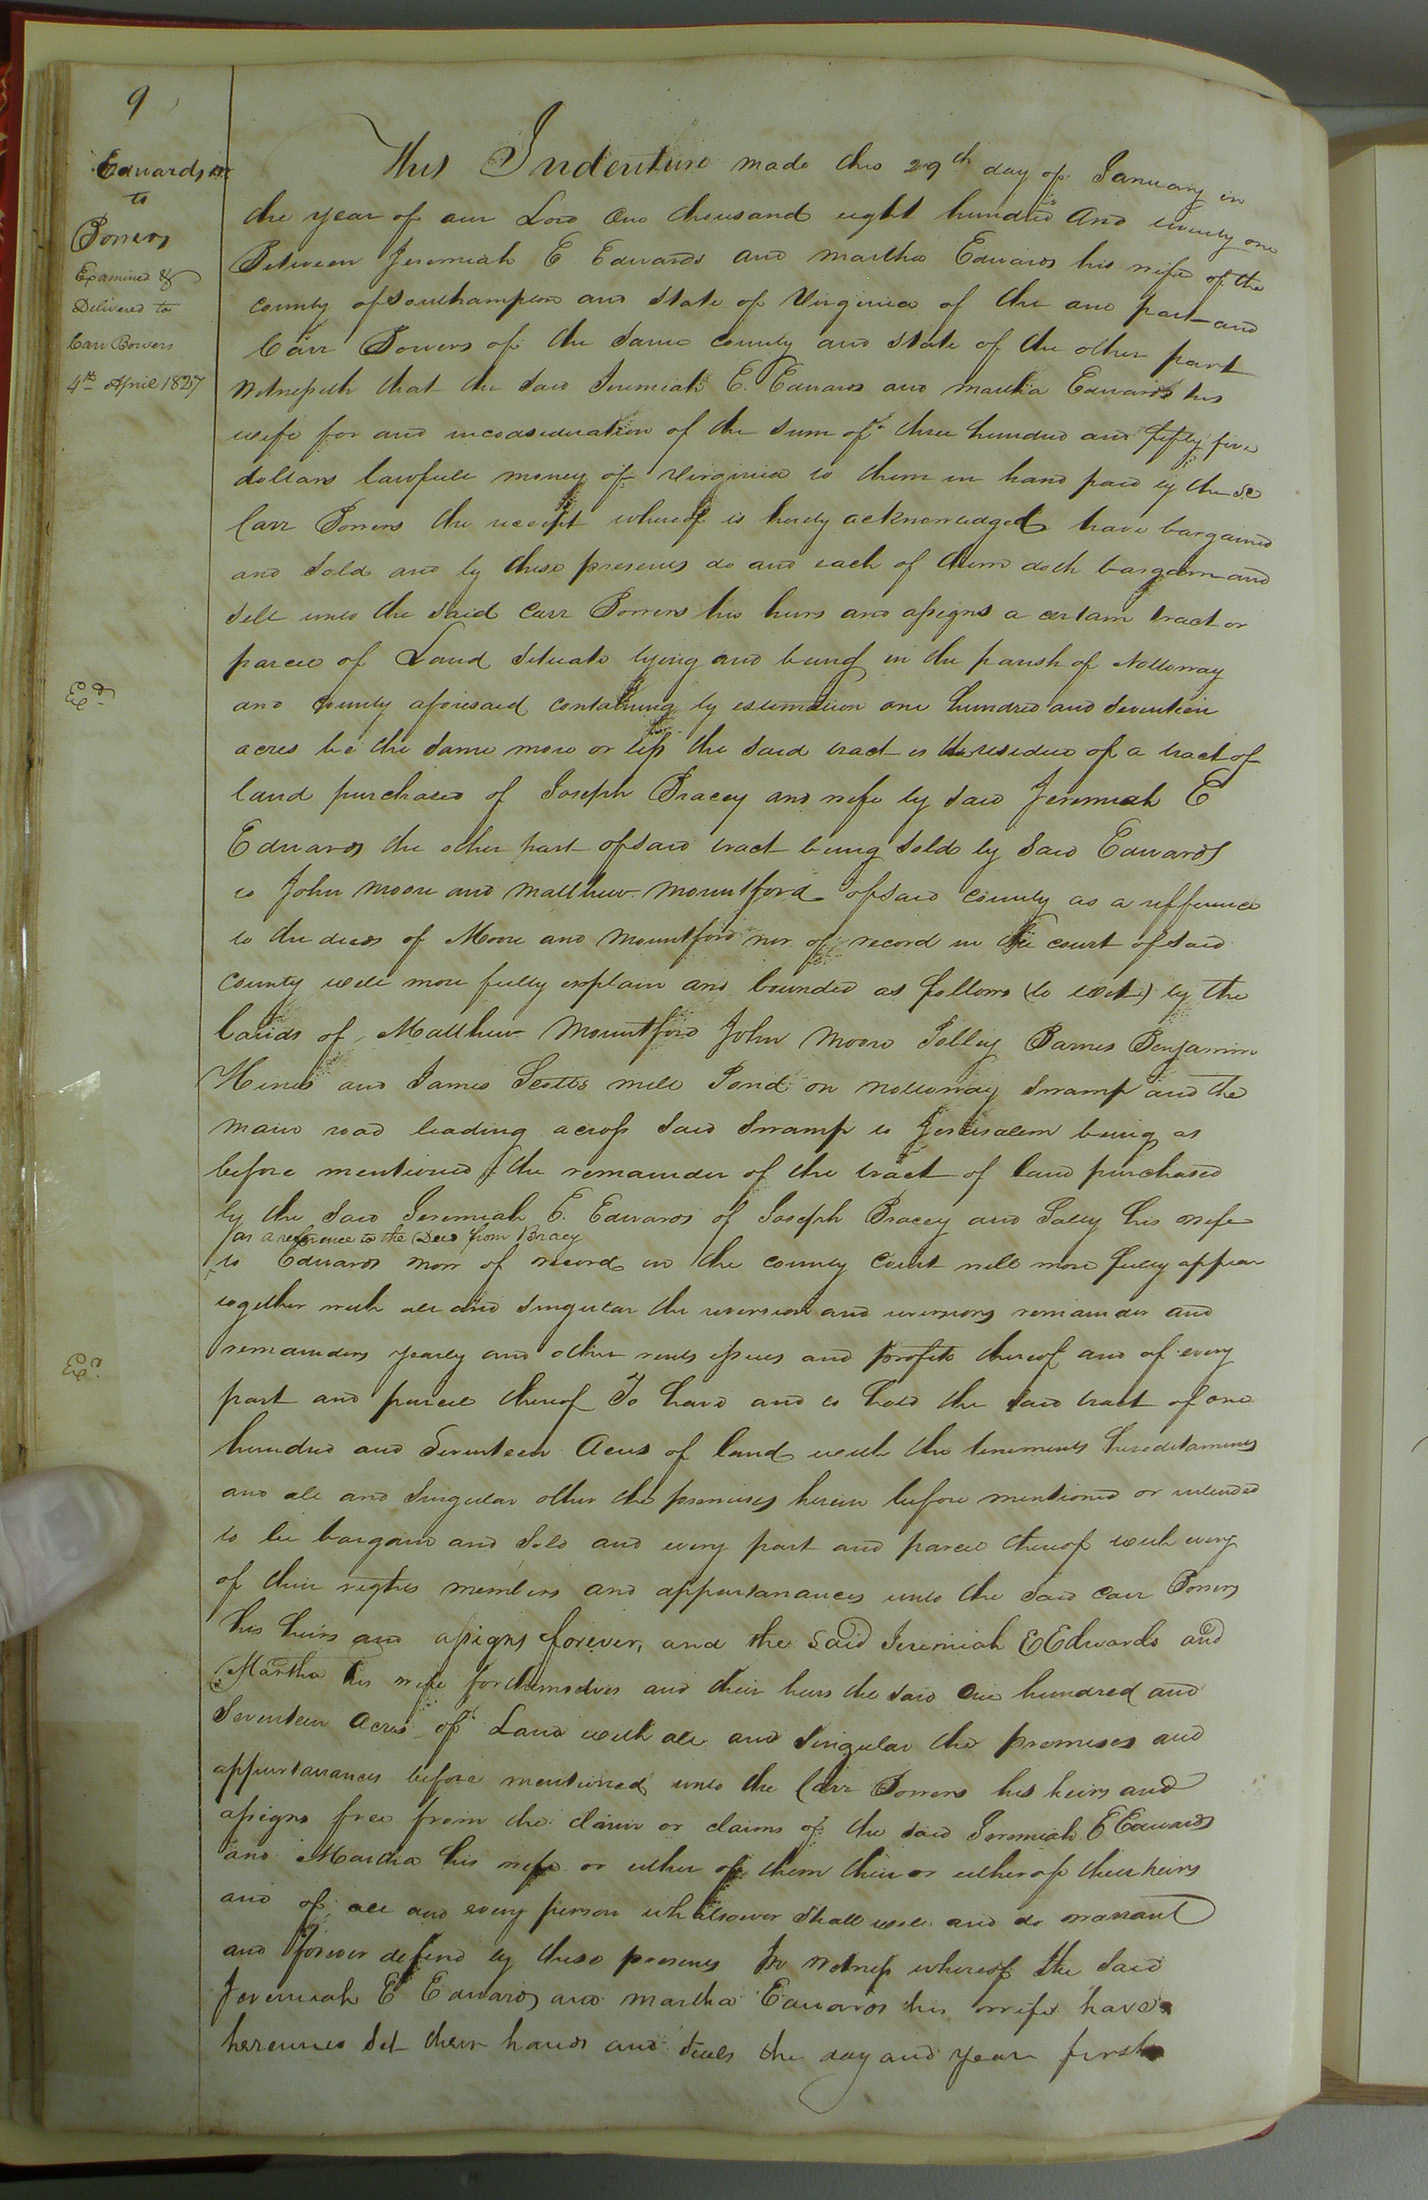 9
Edwards &c
to
Bowers
Examined &
Delivered to
Carr Bowers
4th April 1827
This Indenture made this 29th day of January in
the year of our Lord One thousand eight hundred and twenty one
Between Jeremiah E Edwards and Martha Edwards his wife of the
county of Southampton and State of Virginia of the one part and
Carr Bowers of the same county and state of the other part
Witnesseth that the said Jeremiah E. Edwards and Martha Edwards his
wife for and in consideration of the sum of three hundred and fifty five
dollars lawfull money of Virginia to them in hand paid by the sd
Carr Bowers the receipt whereof is hereby acknowledged have bargained
and sold and by these presents do and each of them doth bargain and
sell unto the said Carr Bowers his heirs and assigns a certain tract or
parcel of Land situate lying and being in the parish of Nottoway
Exd
and county aforesaid containing by estimation one hundred and seventeen
acres be the same more or less the said tract is the residue of a tract of
land purchased of Joseph Bracey and wife by said Jeremiah E
Edwards the other part of said tract being sold by said Edwards
to John Moore and Matthew Mountford of said county as a refference
to the deeds of Moore and Mountford now of record in the court of said
county will more fully explain and bounded as follows (to wit) by the
lands of Matthew Mountford John Moore Jolley Barnes Benjamin
Hines and James Scotts mill Pond on Nottoway Swamp and the
main road leading across said Swamp to Jerusalem being as
before mentioned the remainder of the tract of land purchased
by the said Jeremiah E. Edwards of Joseph Bracey and Sally his wife
as a reference to the Deed from Bracy
to Edwards now of record in the county court will more fully appear
together with all and singular the reversion and reversions remainder and
remainders yearly and other rents issues and profits thereof and of every
Exd.
part and parcel thereof To have and to hold the said tract of one
hundred and Seventeen Acres of land with the tenements hereditaments
and all and singular other the premises herein before mentioned or intended
to be bargain and sold and every part and parcel thereof with every
of their rights members and appurtanances unto the said Carr Bowers
his heirs and assigns forever, and the said Jeremiah E Edwards and
Martha his wife for themselves and their heirs the said One hundred and
Seventeen Acres of Land with all and singular the premises and
appurtanances before mentioned unto the Carr Bowers his heirs and
assigns free from the claim or claims of the said Jeremiah E Edwards
and Martha his wife or either of them their or either of their heirs
and of all and every person whatsoever shall will and do warrant
and forever defend by these presents In Witness whereof the said
Jeremiah E Edwards and Martha Edwards his wife have
hereunto set their hands and seals the day and year first